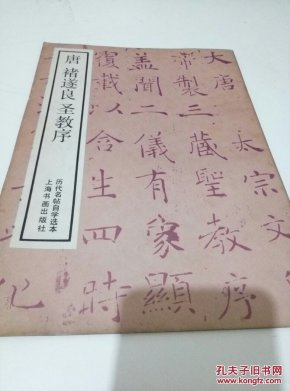 唐 褚遂良 圣教序
历代名帖自学选本
上海书画出版社
大唐太宗文
帝製三藏聖教序
盖聞二儀有象顯
覆載以含生四時
化
孔夫子旧书网